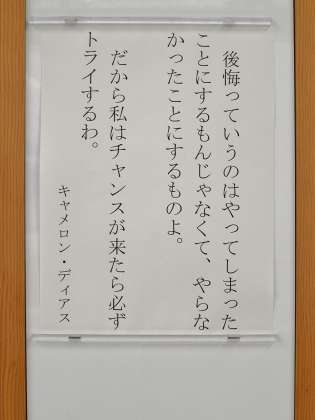 後悔っていうのはやってしまった
ことにするもんじゃなくて、やらな
かったことにするものよ。
だから私はチャンスが来たら必ず
トライするわ。
キャメロン・ディアス